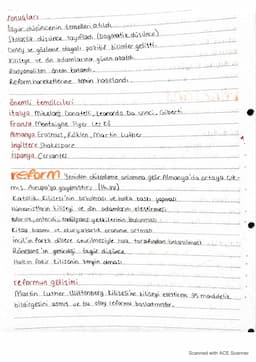 Sonuçları
Özgür düşüncenin temelleri atıldı.
Skolastik düşünce zayıfladı (Dogmatik düşünce)
Deney ve gözleme dayalı pozitif bilimler gelişti.
Kiliseye ve din adamlarına güven azaldı
Rasyonalizm önem kazandı.
Reform hareketlerine zemin hazırlandı.
önemli temsilcileri
İtalya Mikelanj, Donatello, Leonardo Da Vinci, Giberti
Fransa Montaigne, Piyer
Almanya Erasmus, Röklen, Martin Luther
İngiltere Shakespeare
İspanya Cervantes
reform Yeniden düzenleme anlamına gelir. Almanya'da ortaya çık-
mış, Avrupa'ya yayılmıştır.
Katolik Kilisesi'nin bozulması ve halka baskı yapması
Hümanistlerin kiliseyi ve din adamlarını eleştirmesi
yetkilerinin bulunması
Kitap basımı ve okuryazarlık oranının artması
İncil'in farklı dillere çevrilmesiyle halk tarafından anlaşılması
Rönesans'ın getirdiği özgür düşünce
Halkın fakir kilisenin zengin olması
reformun gelişimi
Martin Luther Wittenberg Kilisesi'ne kiliseyi eleştiren 95 maddelik
bildirgesini asmış ve bu olay reformu başlatmıştır.
Scanned with ACE Scanner